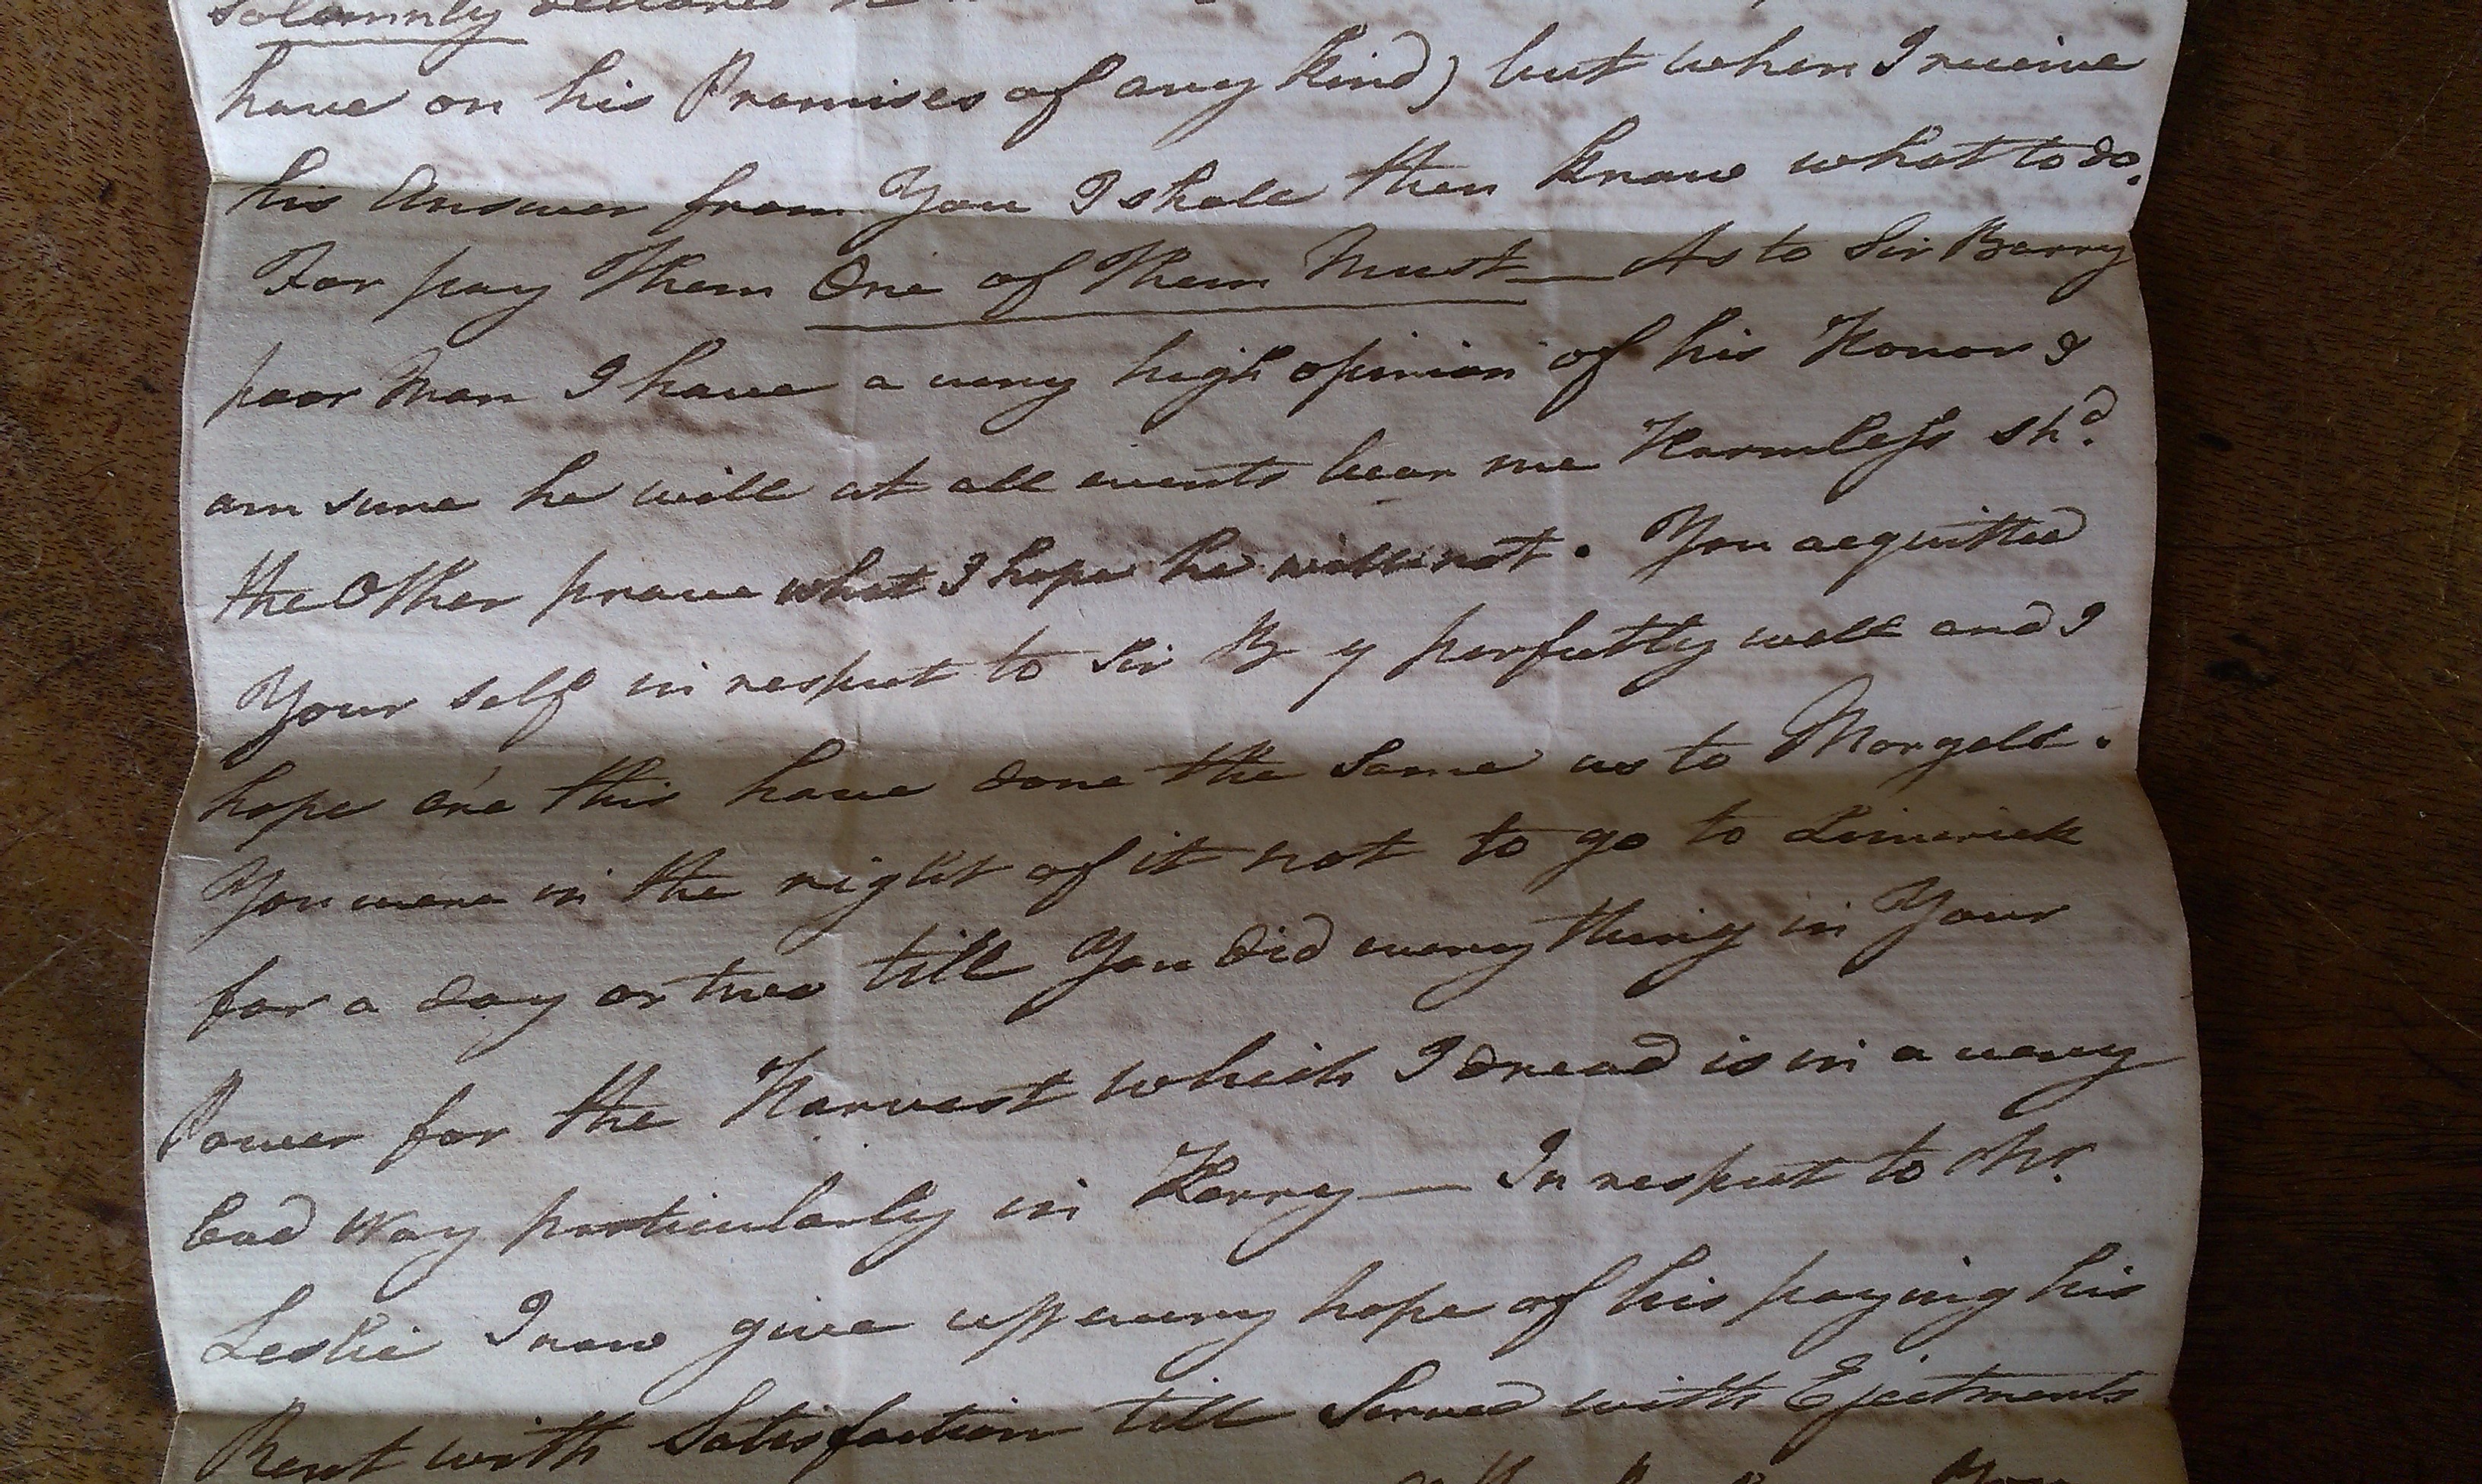 solemnly declares
have on his Promises of any kind) but when I receive
his Answer from You I shall then know what to do.
For pay Them One of Them Must — As to Sir Barry
poor Man I have a very high opinion of his Honor &
am sure he will at all events bear me Harmless sh.d
the Other prove what I hope he will not. You acquitted
Your self in respect to Sir B y perfectly well and I
hope e're this have done the same as to Morgell.
You were in the right of it not to go to Limerick
for a day or two till You did every thing in Your
Power for the Harvest which I dread is in a very
bad Way particularly in Kerry — In respect to Mr.
Leslie I now give up every hope of his paying his
Rent with Satisfaction till Served with Ejectments
You